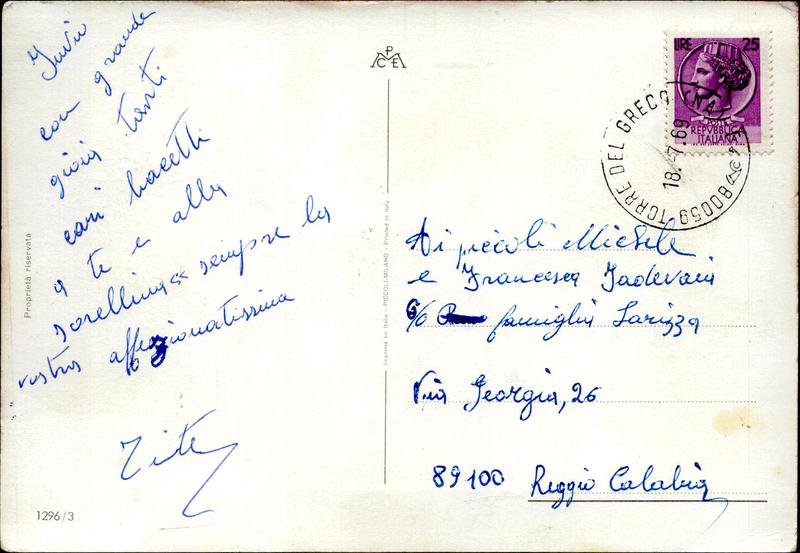 Invio
con grande
gioia tanti
cari bacetti
a te e alla
sorellina e sempre la
vostra affezionatissima
Proprietà riservata
1296/3
P
M C E
Imprimé en Italie - PICCOLI-MILANO - Printed in Italy
LIRE 25
POSTE
REPVBBLICA
ITALIANA
80059 TORRE DEL GRECO (NA)
18.-7.69
Ai piccoli Michele
e Francesca
c/o famiglia Larizza
Via Georgia, 26
89100 Reggio Calabria